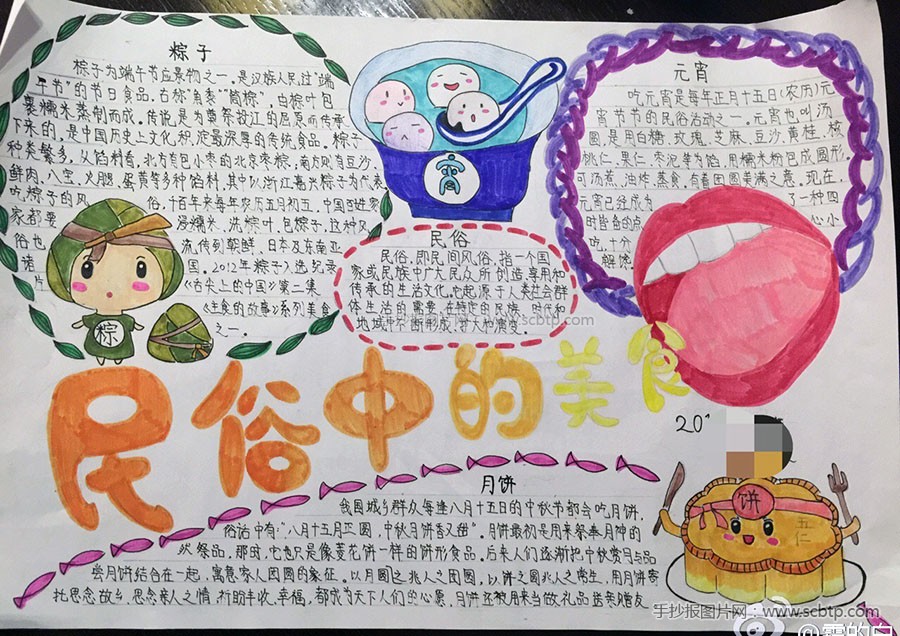 粽子
粽子为端午节应景物之一。是汉族人民过"端
午节"的节日食品。古称"角黍""筒粽"。由粽叶包
裹糯米蒸制而成。传说是为尊祭投江的屈原而传承
下来的。是中国历史上文化积淀最深厚的传统食品。粽子
种类繁多。从馅料看,北方有包小枣的北京枣粽,南方则有豆沙、
鲜肉、八宝、火腿、蛋黄等多种馅料,其中以浙江嘉兴粽子为代表
吃粽子的风俗,千百年来每年农历五月初五,中国百姓家
家都要浸糯米、洗粽叶、包粽子,这种风
俗也流传到朝鲜、日本及东南亚
诸国。2012年粽子入选纪录
片《舌尖上的中国》第二集
《主食的故事》系列美食
之一。
粽
宵
元宵
吃元宵是每年正月十五日(农历)元
宵节的民俗活动之一。元宵也叫汤
圆,是用白糖、玫瑰、芝麻、豆沙、黄桂、核
桃仁、果仁、枣泥等为馅,用糯米粉包成圆形,
可汤煮、油炸、蒸食,有着团圆美满之意。现在,
元宵已经成为了一种四
时皆备的点心小
吃,十分
解馋。
民俗
民俗,即民间风俗,指一个国
家或民族中广大民众所创造享用和
传承的生活文化。它起源于人类社会群
体生活的需要,在特定的民族、时代和
地域中不断形成、扩大和演变。
手抄报图片网:www.scbtp.com
民俗中的美食
20
月饼
我国城乡群众每逢八月十五日的中秋节都会吃月饼,
俗话中有:"八月十五月正圆,中秋月饼香又甜"。月饼最初是用来祭奉月神的
祭品。那时,它也只是像菱花饼一样的饼形食品。后来人们逐渐把中秋赏月与品
尝月饼结合在一起,寓意家人团圆的象征。以月圆之兆人之团圆,以饼之圆兆人之常生,用月饼寄
托思念故乡,思念亲人之情,祈盼丰收、幸福,都成为天下人们的心愿,月饼还被用来当做礼品送亲赠友
饼
五仁
手抄报图片网:www.scbtp.com